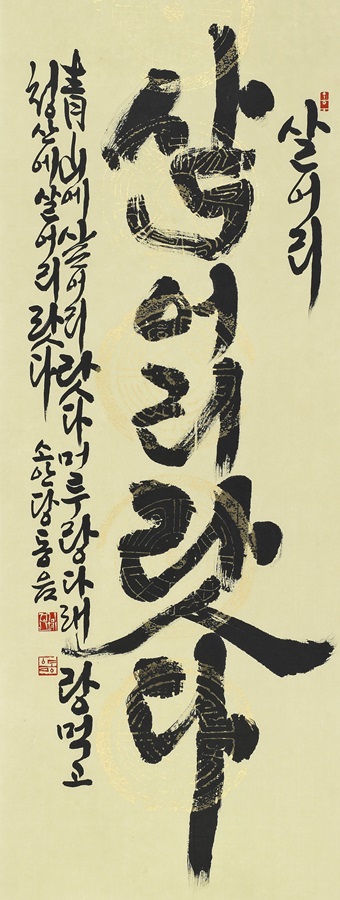 살어리
살어리랏다
青山에 살어리랏다 머루랑 다래랑 먹고
청산에 살어리랏다
소안당